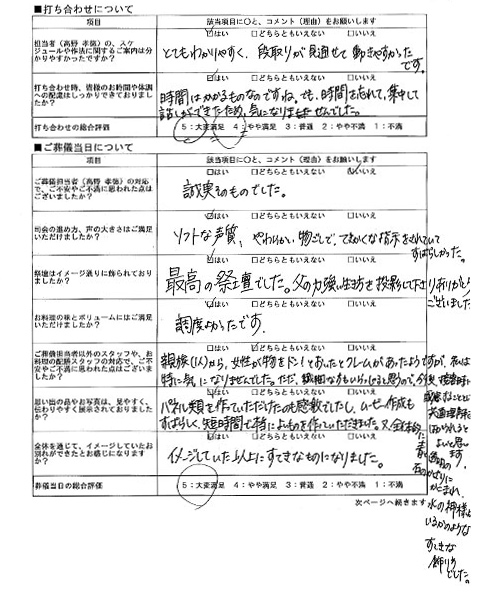 ■打ち合わせについて
項目
該当項目に○と、コメント(理由)をお願いします
担当者(高野 孝徳)の、スケジュールや作法に関するご案内は分かりやすかったですか?
☑はい □どちらともいえない □いいえ
とてもわかりやすく、段取りが見通せて動きやすかったです。
打ち合わせ時、皆様のお時間や体調への配慮はしっかりできておりましたか?
☑はい □どちらともいえない □いいえ
時間はかかるものなのですね。でも、時間を忘れて、集中して
話しができたため、気になりませんでした。
打ち合わせの総合評価
5:大変満足 4:やや満足 3:普通 2:やや不満 1:不満
■ご葬儀当日について
項目
該当項目に○と、コメント(理由)をお願いします
ご葬儀担当者(高野 孝徳)の対応で、ご不安やご不満に思われた点はございましたか?
□はい □どちらともいえない ☑いいえ
誠実そのものでした。
司会の進め方、声の大きさはご満足いただけましたか?
☑はい □どちらともいえない □いいえ
ソフトな声質、やわらかい物ごしで、てきかくな指示をされていて
すばらしかった。
祭壇はイメージ通りに飾られておりましたか?
☑はい □どちらともいえない □いいえ
最高の祭壇でした。父の力強い生き方を投影して下さりありがとう
ございました
お料理の味とボリュームにはご満足いただけましたか?
☑はい □どちらともいえない □いいえ
調度よかったです。
ご葬儀担当者以外のスタッフや、お料理の配膳スタッフの対応で、ご不安やご不満に思われた点はございましたか?
□はい □どちらともいえない □いいえ
親族(1人)から、女性が物をドン!とおいたとクレームがあったようですが、私は
特に気になりませんでした。ただ、
思い出の品やお写真は、見やすく、伝わりやすく展示されておりましたか?
☑はい □どちらともいえない □いいえ
パネル類を作っていただけたのも感激でしたし、ムービー作成も
すばらしく、短時間で特によいものを作っていただきました。又、全体的に
全体を通じて、イメージしていたお別れができたとお感じになりますか?
☑はい □どちらともいえない □いいえ
イメージしていた以上にすてきなものになりました。
葬儀当日の総合評価
5:大変満足 4:やや満足 3:普通 2:やや不満 1:不満
次ページへ続きます
かこまれ、
水の神様
いるかのような
すてきな
飾り
でした。